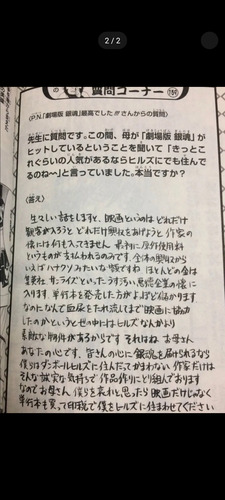 2/2
質問コーナー 159
(P.N.「劇場版 銀魂」最高でした!!!さんからの質問)
先生に質問です。この間、母が「劇場版 銀魂」が
ヒットしているということを聞いて「きっとこ
れぐらいの人気があるならヒルズにでも住んで
るのね〜」と言っていました。本当ですか?
(答え)
生々しい話をしますと、映画というのはどれだけ
観客が入ろうと どれだけ興収をあげようと 作家の
懐には何も入ってきません 最初に原作使用料
というものが支払われるのみです。全体の興収から
いえばハナクソみたいな額ですね ほとんどの金は
集英社 サンライズといったうす汚い悪徳企業の懐に
入ります。単行本を発売した方がよほど儲かります
なのになんで血尿をたれ流してまで映画に協力
したのかというと 世の中にはヒルズなんかより
素敵な物件があるからです それはね お母さん
あなたの心です。皆さんの心に銀魂を届けられるなら
僕らはダンボールヒルズに住んだってかまわない 作家だけは
そんな誠実な気持ちで作品作りにとり組んでおります
なのでお母さん 僕らを哀れと思ったら 映画だけじゃなく
単行本も買って印税で僕をヒルズに住まわせてください